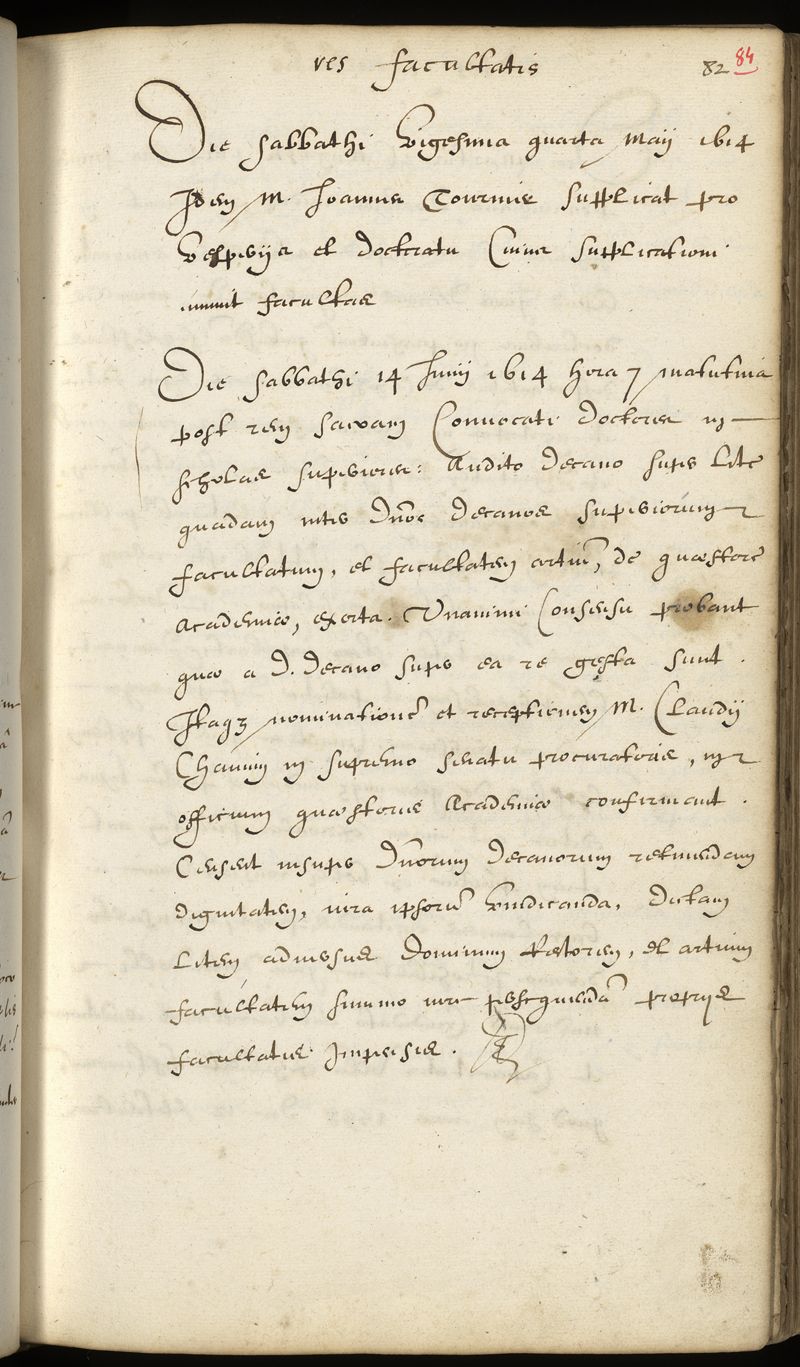 res facultatis 82 84
Die sabbathi vigesima quarta Maij 1614
Idem M. Joannes Tournier supplicat pro
vesperijs et doctoratu Cuius supplicationi
innuit facultas
Die sabbathi 14 Junij 1614 hora 7 matutina
post rem sacram Convocati doctores in
scholas superiores: Audito decano super lite
quadam inter Dnos decanos superiorum
facultatum, et facultatem artiũ, de quæstore
Academiæ, exorta. Unanimi Consensu probant
quæ a D. Decano super ea re gesta sunt.
Itaqȝ nominationẽ et receptionem M. Claudij
in supremo senatu procuratoris, in
officium quæstoris Academiæ confirmant.
Censent insuper Dnorum Decanorum retinendam
dignitatem, iura ipsorũ vindicanda, dictam
litem adversus dominum Rectorem, et artium
facultatem summo iure persequendã proprijs
facultatis Impensis.